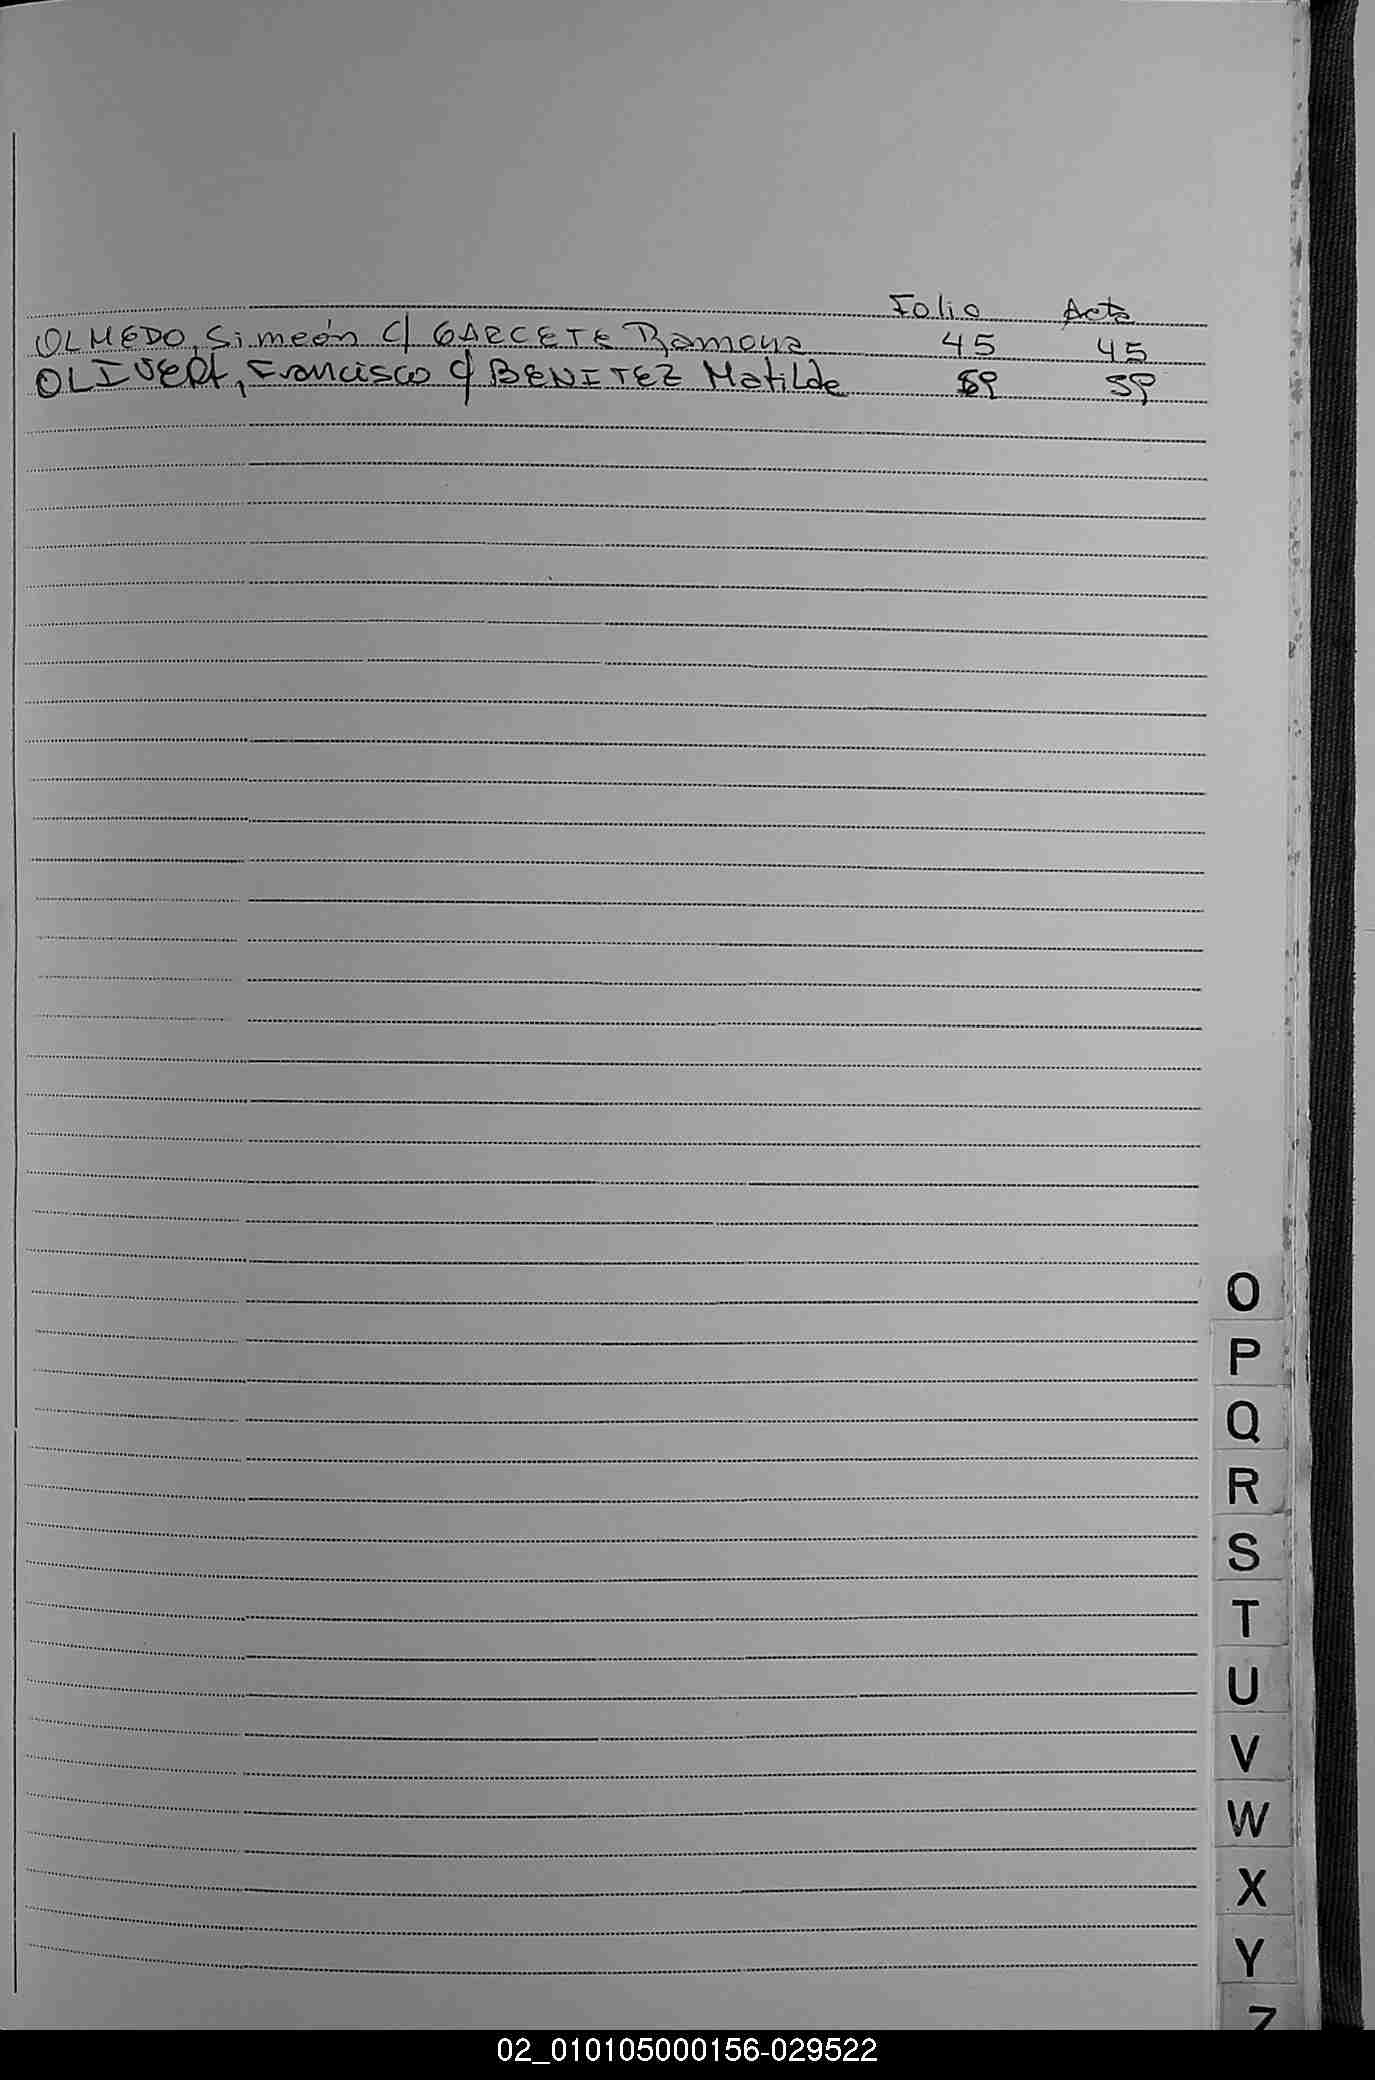 Folio Acta
OLMEDO, Simeón c/ GARCETE Ramona 45 45
OLIVERA, Francisco c/ BENITEZ Matilde 59 59
O
P
Q
R
S
T
U
V
W
X
Y
Z
02_010105000156-029522